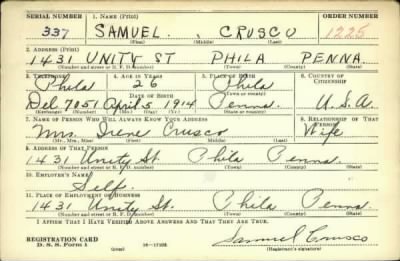 SERIAL NUMBER 1. NAME (Print) ORDER NUMBER
337 SAMUEL . CRUSCO 1225
(First) (Middle) (Last)
2. ADDRESS (Print)
1431 UNITY ST PHILA PENNA.
(Number and street or R. F. D. number) (Town) (County) (State)
3. TELEPHONE 4. AGE IN YEARS 5. PLACE OF BIRTH 6. COUNTRY OF CITIZENSHIP
Phila 26 Phila
DATE OF BIRTH (Town or county)
Del 7051 April 5 1914 Penna. U.S.A.
(Exchange) (Number) (Mo.) (Day) (Yr.) (State or country)
7. NAME OF PERSON WHO WILL ALWAYS KNOW YOUR ADDRESS 8. RELATIONSHIP OF THAT PERSON
Mrs. Irene Crusco Wife
(Mr., Mrs., Miss) (First) (Middle) (Last)
9. ADDRESS OF THAT PERSON
1431 Unity St. Phila Penna.
(Number and street or R. F. D. number) (Town) (County) (State)
10. EMPLOYER'S NAME
Self
11. PLACE OF EMPLOYMENT OR BUSINESS
1431 Unity St. Phila Penna.
(Number and street or R. F. D. number) (Town) (County) (State)
I AFFIRM THAT I HAVE VERIFIED ABOVE ANSWERS AND THAT THEY ARE TRUE.
REGISTRATION CARD
D. S. S. Form 1 (over) Samuel Crusco
(Registrant's signature)